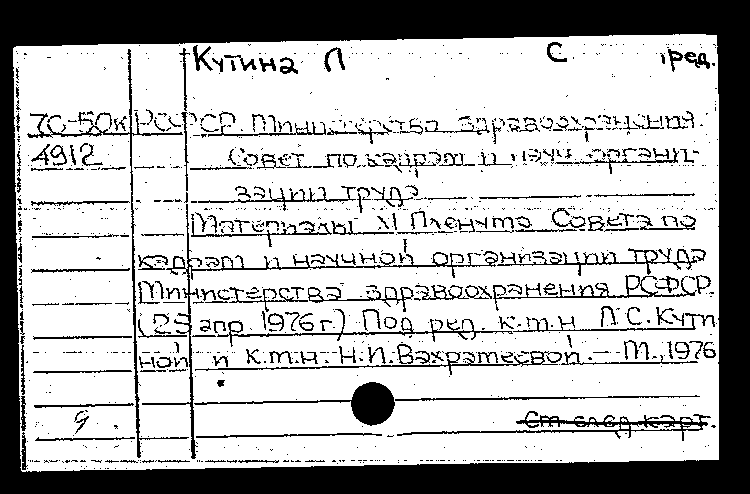 Кутина Л С ред.
7С-50к РСФСР. Министерство здравоохранения.
4912 Совет по кадрам и науч. органи-
зации труда
Материалы XI Пленума Совета по
кадрам и научной организации труда
Министерства здравоохранения РСФСР.
(23 апр. 1976 г.) Под ред. к.м.н Л.С. Кути
ной и к.м.н. Н.И. Вахрамеевой. — М., 1976
9 См след карт.